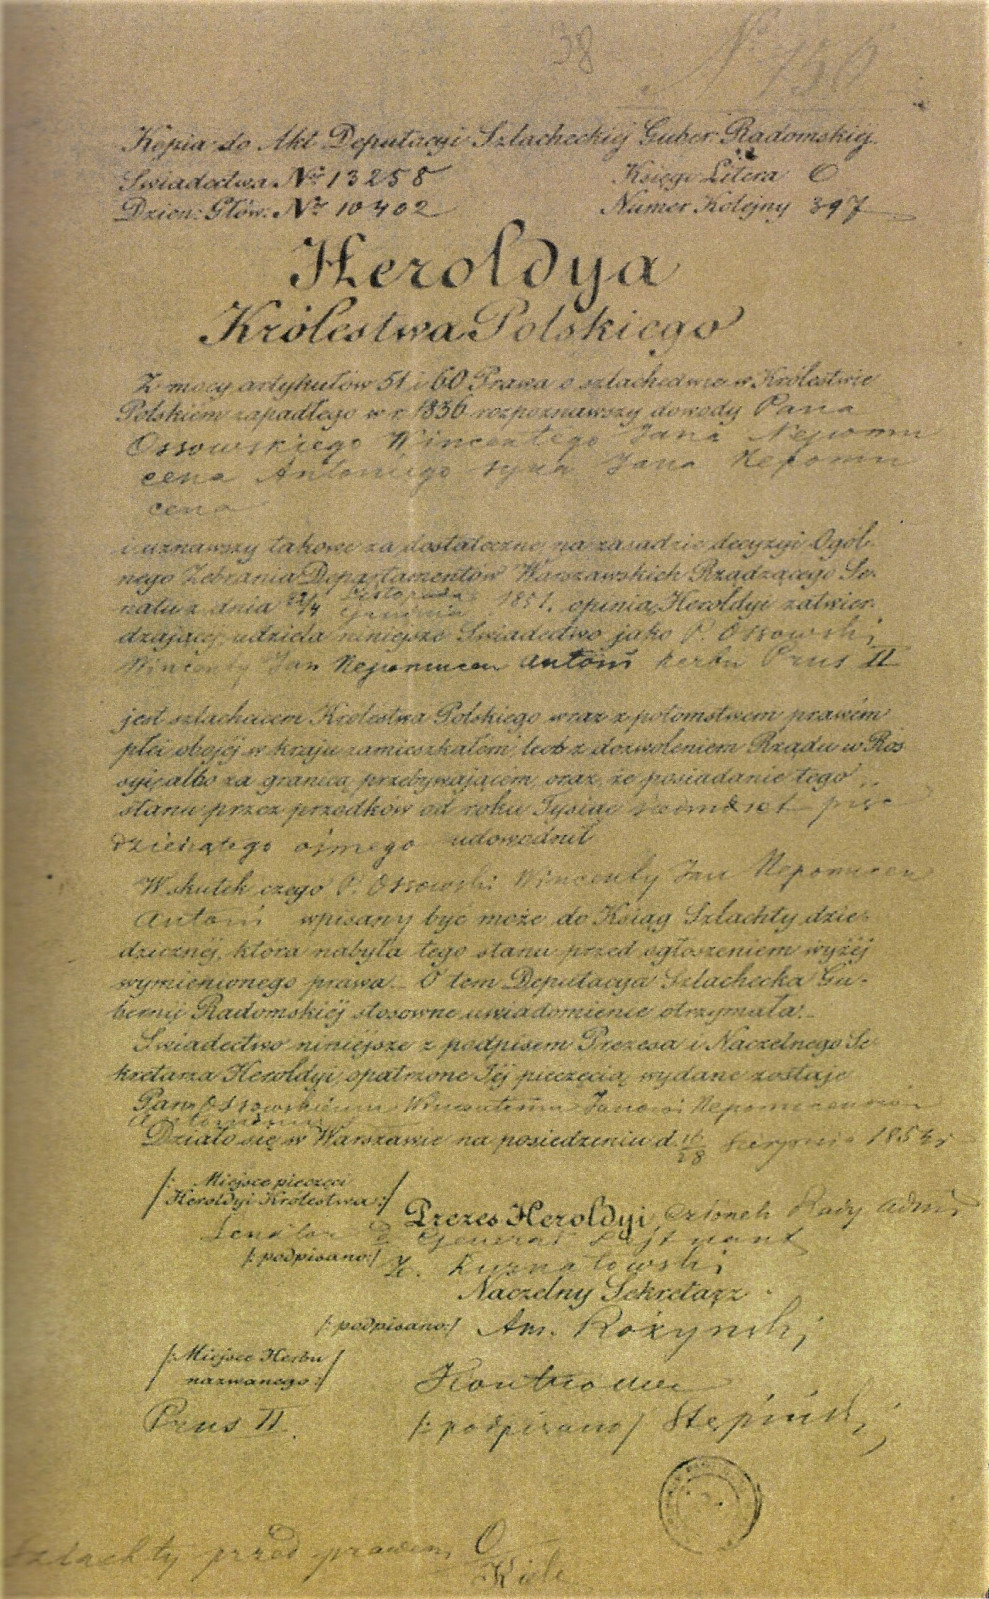 38
No 156
Kopia do Akt Deputacyi Szlacheckiéj Guber: Radomskiéj.
Swiadectwa No 13258
Księgi Litera O
Dzien: Głów: No 10402
Numer Kolejny 397
Heroldya
Królestwa Polskiego
Z mocy artykułów 51 i 60 Prawa o szlachectwie w Królestwie
Polskiém zapadłego w r. 1836 rozpoznawszy dowody Pana
Ossowskiego Wincentego Jana Nepomu
cena Antoniego syna Jana Nepomu
cena
i uznawszy takowe za dostateczne, na zasadzie decyzyi Ogól-
nego Zebrania Departamentów Warszawskich Rządzącego Se-
natu z dnia 22/4 Listopada Grudnia 1851. opinią Heroldyi zatwier-
dzającéj, udziela niniejsze Swiadectwo jako P. Ossowski
Wincenty Jan Nepomucen Antoni herbu Prus II
jest szlachcicem Królestwa Polskiego wraz z potomstwem prawém
płci obojéj w kraju zamieszkałém, lub z dozwoleniem Rządu w Ros-
syi, albo za granicą przebywającém, oraz, że posiadanie tego
stanu przez przodków od roku Tysiąc siedmset pięć
dziesiątego ósmego udowodnił
W skutek czego P. Ossowski Wincenty Jan Nepomucen
Antoni wpisany być może do Ksiąg Szlachty dzie-
dzicznéj, która nabyła tego stanu przed ogłoszeniem wyżéj
wymienionego prawa. O tem Deputacya Szlachecka Gu-
bernii Radomskiéj stosowne uwiadomienie otrzymała.
Swiadectwo niniejsze z podpisem Prezesa i Naczelnego Se-
kretarza Heroldyi, opatrzone Jéj pieczęcią, wydane zostaje
Panu Ossowskiemu Wincentemu Janowi Nepomucenowi
Antoniemu
Działo się w Warszawie na posiedzeniu d. 16/28 Sierpnia
/: Miejsce pieczęci
Heroldyi Królestwa :/
Prezes Heroldyi, Członek Rady Adm
Senator Generał Lejtnant
/: podpisano :/
Naczelny Sekretarz
/: podpisano :/ Am. Rożynski
/: Miejsce Herbu
nazwanego :/
Prus II.
/: podpisano / Stępiński
Szlachty przed prawem O